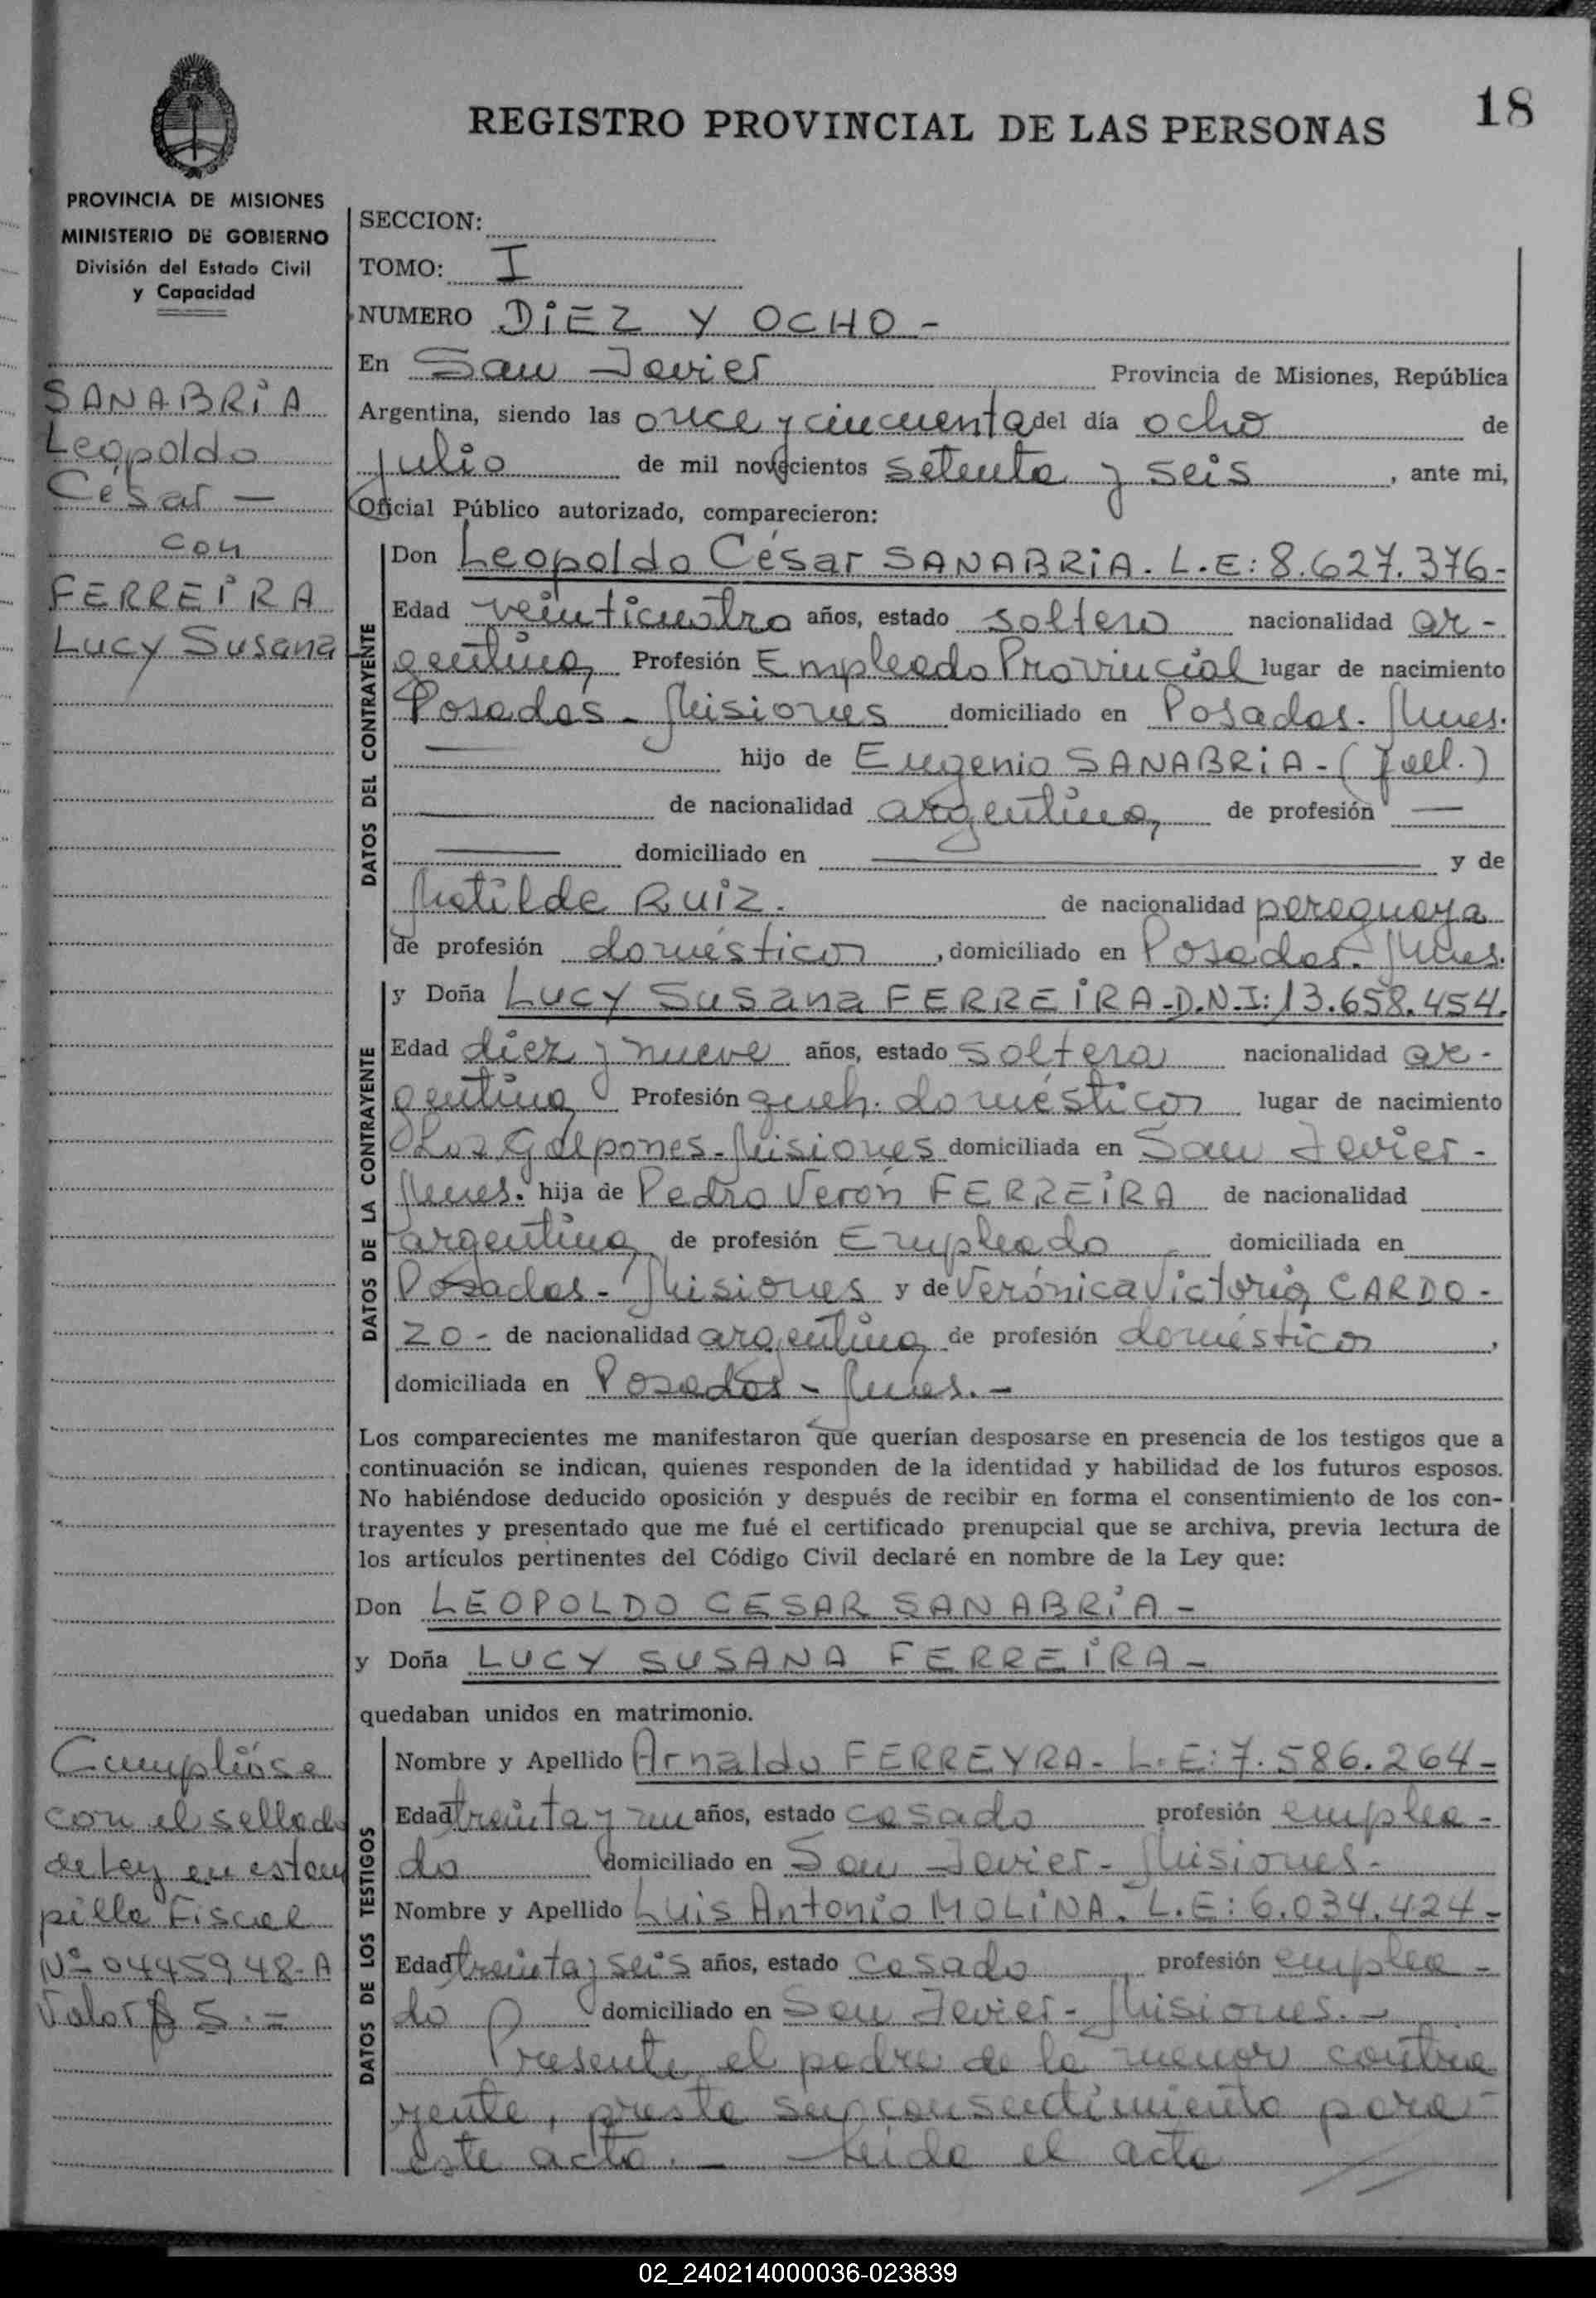 18
REGISTRO PROVINCIAL DE LAS PERSONAS
PROVINCIA DE MISIONES
MINISTERIO DE GOBIERNO
División del Estado Civil
y Capacidad
SANABRIA
Leopoldo
César —
con
FERREIRA
Lucy Susana
SECCION:
TOMO: I
NUMERO DIEZ Y OCHO -
En San Javier Provincia de Misiones, República
Argentina, siendo las once y cincuenta del día ocho de
julio de mil novecientos setenta y seis, ante mi,
Oficial Público autorizado, comparecieron:
DATOS DEL CONTRAYENTE
Don Leopoldo César SANABRIA. L.E: 8.627.376-
Edad veinticuatro años, estado soltero nacionalidad ar-
gentina, Profesión Empleado Provincial lugar de nacimiento
Posadas - Misiones domiciliado en Posadas. Mnes.
— hijo de Eugenio SANABRIA - (fall.)
de nacionalidad argentina, de profesión —
— domiciliado en — y de
Matilde RUIZ. de nacionalidad paraguaya
de profesión domésticos, domiciliado en Posadas. Mnes.
DATOS DE LA CONTRAYENTE
y Doña Lucy Susana FERREIRA-D.N.I: 13.658.454.
Edad diez y nueve años, estado soltera nacionalidad ar-
gentina Profesión queh. domésticos lugar de nacimiento
Los Galpones - Misiones domiciliada en San Javier -
Mnes. hija de Pedro Verón FERREIRA de nacionalidad
argentina, de profesión Empleado domiciliada en
Posadas - Misiones y de Verónica Victoria CARDO -
ZO - de nacionalidad argentina, de profesión domésticos,
domiciliada en Posadas - Mnes. -
Los comparecientes me manifestaron que querían desposarse en presencia de los testigos que a
continuación se indican, quienes responden de la identidad y habilidad de los futuros esposos.
No habiéndose deducido oposición y después de recibir en forma el consentimiento de los con-
trayentes y presentado que me fué el certificado prenupcial que se archiva, previa lectura de
los artículos pertinentes del Código Civil declaré en nombre de la Ley que:
Don LEOPOLDO CESAR SANABRIA -
y Doña LUCY SUSANA FERREIRA -
quedaban unidos en matrimonio.
DATOS DE LOS TESTIGOS
Nombre y Apellido Arnaldo FERREYRA - L.E: 7.586.264 -
Edad treinta y un años, estado casado profesión emplea -
do domiciliado en San Javier - Misiones -
Nombre y Apellido Luis Antonio MOLINA. L.E: 6.034.424 -
Edad treinta y seis años, estado casado profesión emplea -
do domiciliado en San Javier - Misiones. -
Presente el padre de la menor contra
yente, presta su consentimiento para
este acto. — Leida el acta
Cumplióse
con el sellado
de Ley en estam
pilla Fiscal
Nº 0445948-A
Valor $ 5.=
02_240214000036-023839